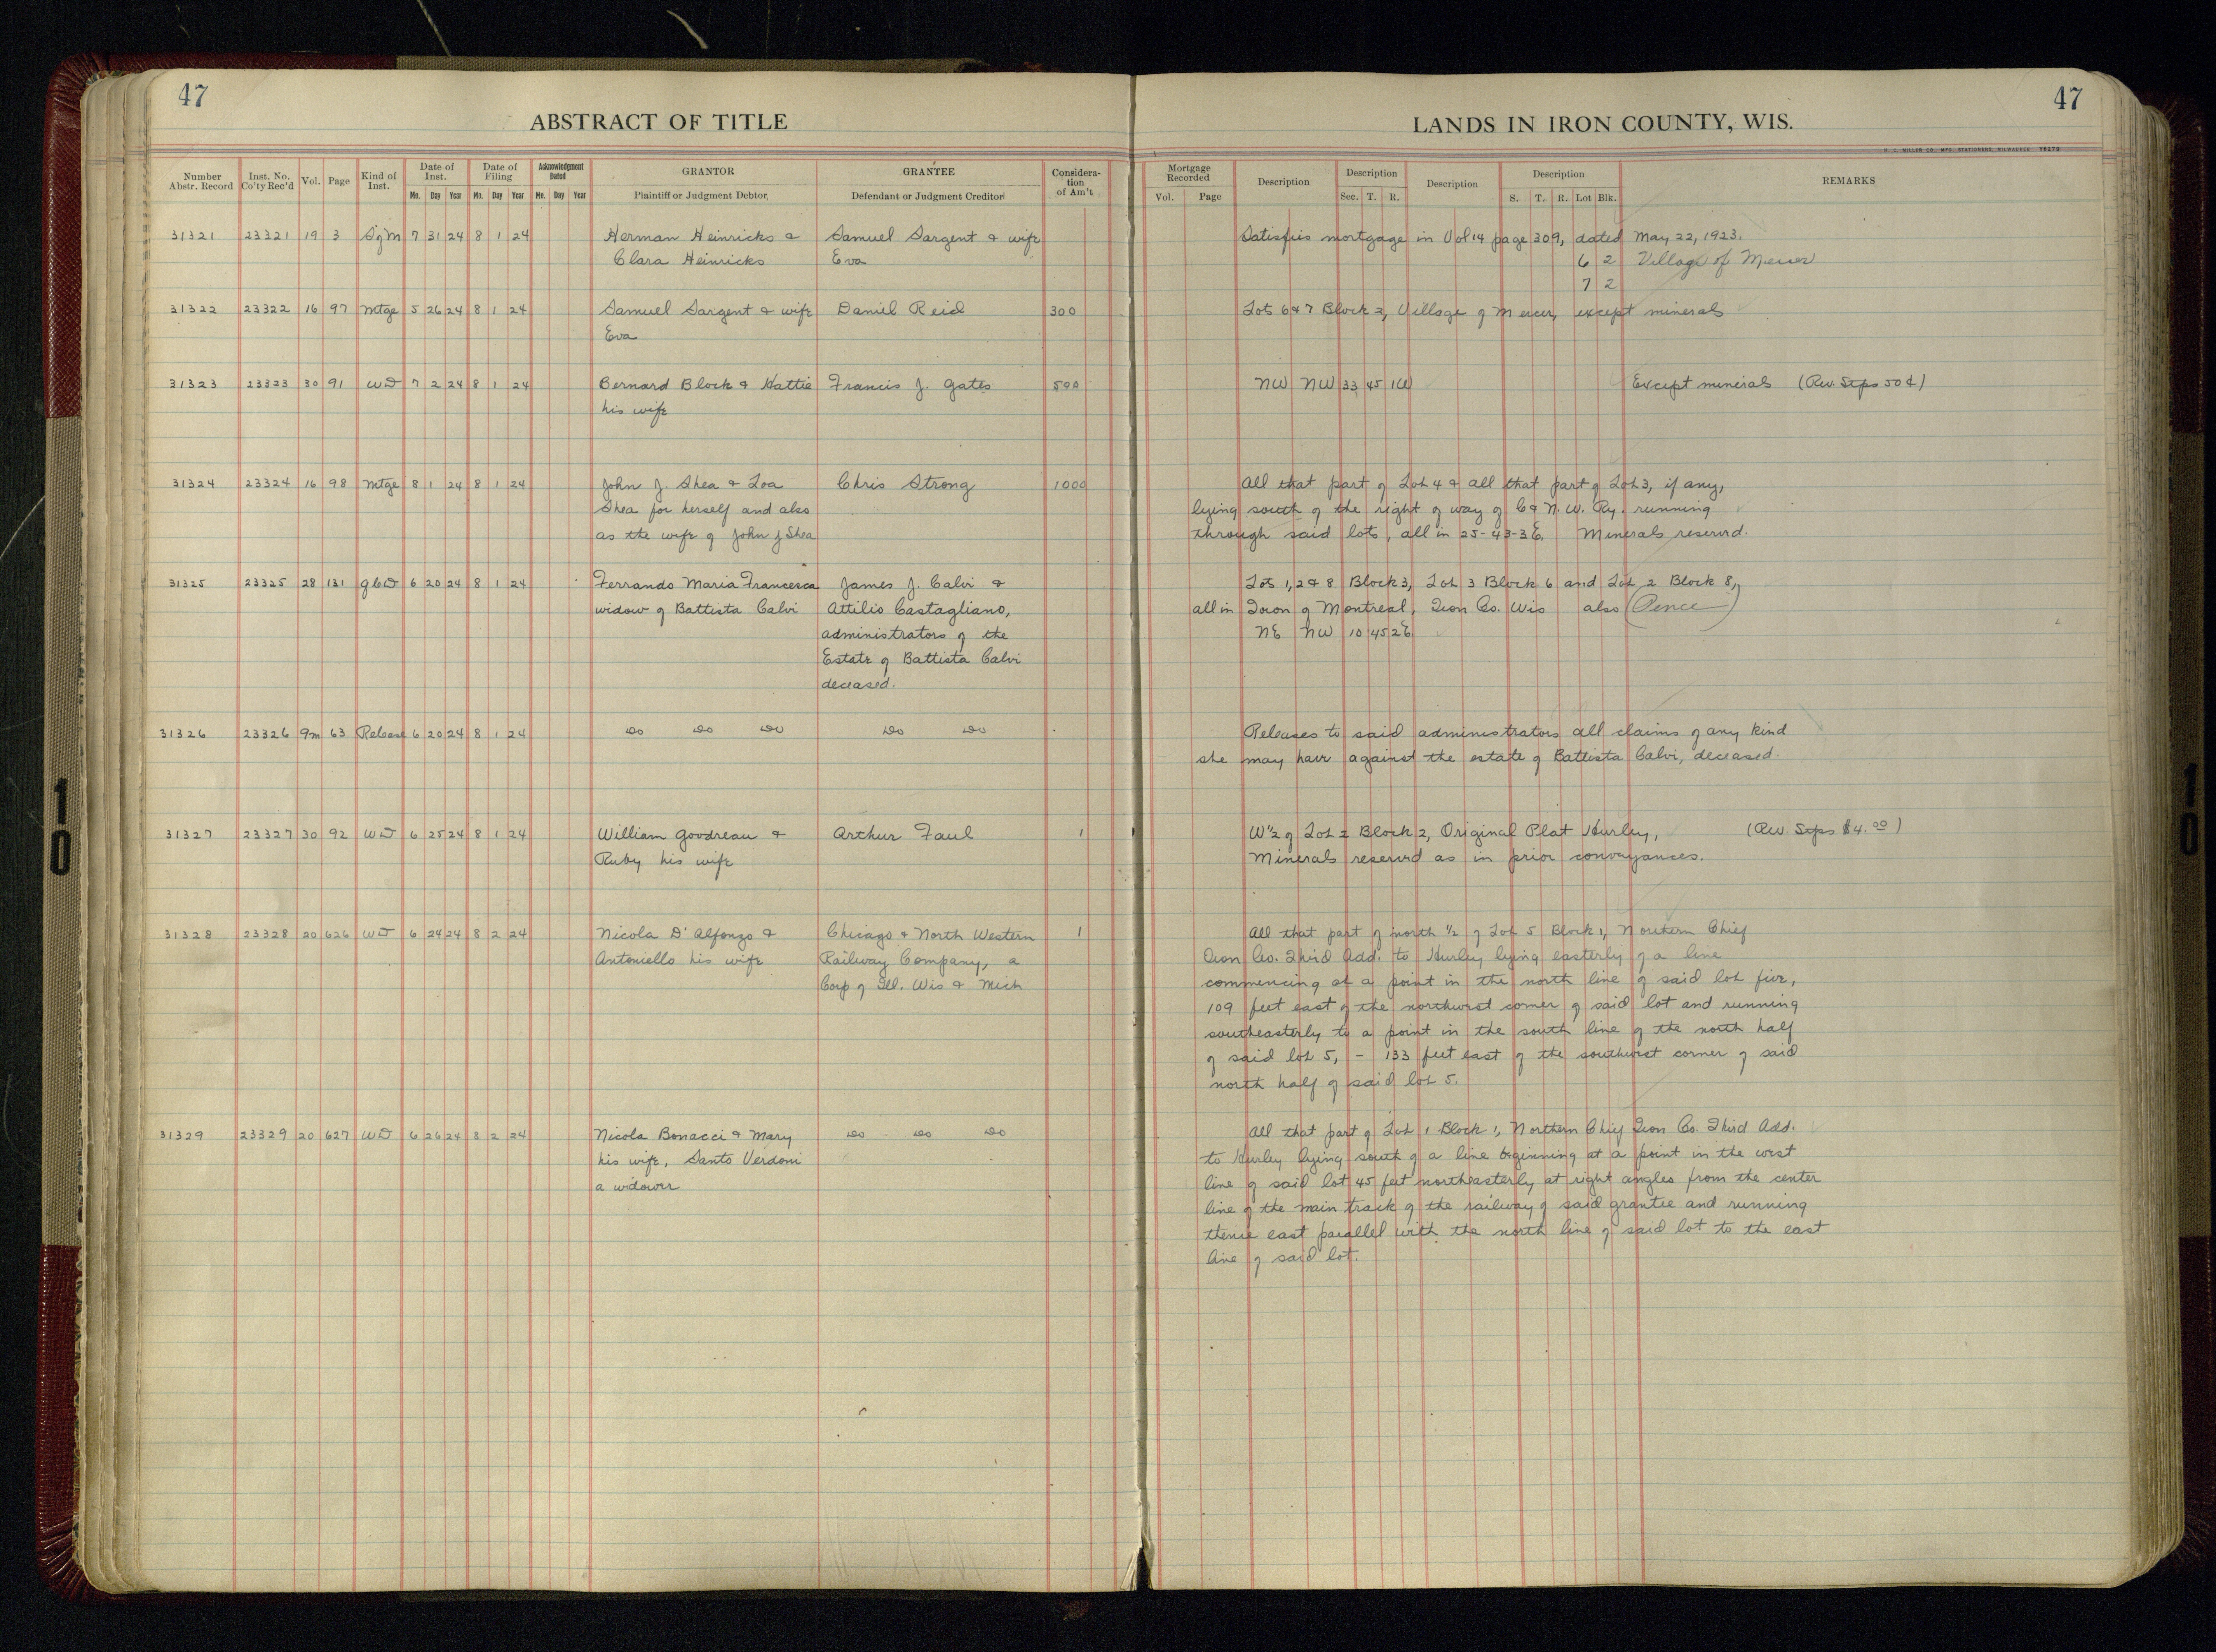 47
ABSTRACT OF TITLE
Number Abstr. Record Inst. No. Co'ty Rec'd Vol. Page Kind of Inst. Date of Inst. Mo. Day Year Date of Filing Mo. Day Year Acknowledgment Dated Mo. Day Year GRANTOR Plaintiff or Judgment Debtor GRANTEE Defendant or Judgment Creditor Considera- tion of Am't
31321 23321 19 3 SgM 7 31 24 8 1 24 Herman Heinricks & Samuel Sargent & wife
Clara Heinricks Eva
31322 23322 16 97 Mtge 5 26 24 8 1 24 Samuel Sargent & wife Daniel Reid 300
Eva
31323 23323 30 91 WD 7 2 24 8 1 24 Bernard Block & Hattie Francis J. Gates 500
his wife
31324 23324 16 98 Mtge 8 1 24 8 1 24 John J. Shea & Loa Chris Strong 1000
Shea for herself and also
as the wife of John J Shea
31325 23325 28 131 QCD 6 20 24 8 1 24 Ferrando Maria Francesca James J. Calvi &
widow of Battista Calvi Attilio Castagliano,
administrators of the
Estate of Battista Calvi
deceased.
31326 23326 9m 63 Release 6 20 24 8 1 24 do do do do do
31327 23327 30 92 WD 6 25 24 8 1 24 William Goodreau & Arthur Faul 1
Ruby his wife
31328 23328 20 626 WD 6 24 24 8 2 24 Nicola D'Alfonzo & Chicago & North Western 1
Antoniello his wife Railway Company, a
Corp of Ill. Wis & Mich
31329 23329 20 627 WD 6 26 24 8 2 24 Nicola Bonacci & Mary do do do
his wife, Santo Verdoni
a widower
47
LANDS IN IRON COUNTY, WIS.
H. C. MILLER CO., MFG. STATIONERS, MILWAUKEE
Mortgage Recorded Vol. Page Description Description Sec. T. R. Description Description S. T. R. Lot Blk. REMARKS
Satisfies mortgage in Vol 14 page 309, dated May 22, 1923.
6 2 Village of Mercer
7 2
Lots 6 & 7 Block 2, Village of Mercer, except minerals
NW NW 33 45 1W Except minerals (Rev. Stps 50¢)
All that part of Lot 4 & all that part of Lot 3, if any,
lying south of the right of way of C & N. W. Ry. running
through said lots, all in 25-43-3E. Minerals reserved.
Lots 1, 2 & 8 Block 3, Lot 3 Block 6 and Lot 2 Block 8,
all in Town of Montreal, Iron Co. Wis also (Pence)
NE NW 10 45 2E
Releases to said administrators all claims of any kind
she may have against the estate of Battista Calvi, deceased.
W½ of Lot 2 Block 2, Original Plat Hurley, (Rev. Stps $4.00)
Minerals reserved as in prior conveyances.
All that part of north ½ of Lot 5 Block 1, Northern Chief
Iron Co. Third Add. to Hurley lying easterly of a line
commencing at a point in the north line of said lot five,
109 feet east of the northwest corner of said lot and running
southeasterly to a point in the south line of the north half
of said lot 5, - 133 feet east of the southwest corner of said
north half of said lot 5.
All that part of Lot 1 Block 1, Northern Chief Iron Co. Third Add.
to Hurley lying south of a line beginning at a point in the west
line of said lot 45 feet northeasterly at right angles from the center
line of the main track of the railway of said grantee and running
thence east parallel with the north line of said lot to the east
line of said lot.
10
10